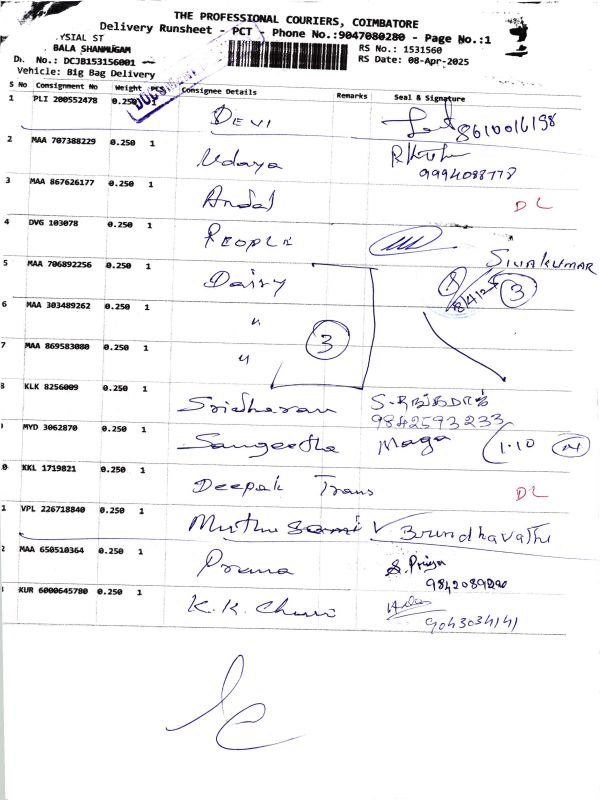 THE PROFESSIONAL COURIERS, COIMBATORE
Delivery Runsheet - PCT - Phone No.:9047080280 - Page No.:1
YSIAL ST
BALA SHANMUGAM
No.: DCJB153156001
Vehicle: Big Bag Delivery
RS No.: 1531560
RS Date: 08-Apr-2025
S No Consignment No Weight Consignee Details Remarks Seal & Signature
1 PLI 200552478 0.250 DEVI 8610016198
2 MAA 707388229 0.250 1 Udaya 9994088778
3 MAA 867626177 0.250 1 Andal DL
4 DVG 103078 0.250 1 PEOPLE SIVAKUMAR
5 MAA 706892256 0.250 1 Dairy 3
6 MAA 303489262 0.250 1 " 3
7 MAA 869583080 0.250 1 "
KLK 8256009 0.250 1 Sridharan
9842593233
MYD 3062870 0.250 1 Sangeetha Maga 1.10
0 KKL 1719821 0.250 1 Deepak Trans DL
1 VPL 226718840 0.250 1 Muthu Sami V Brundhavathi
2 MAA 650510364 0.250 1 Prema S. Priya
KUR 6000645780 0.250 1 K.K.
9043034141